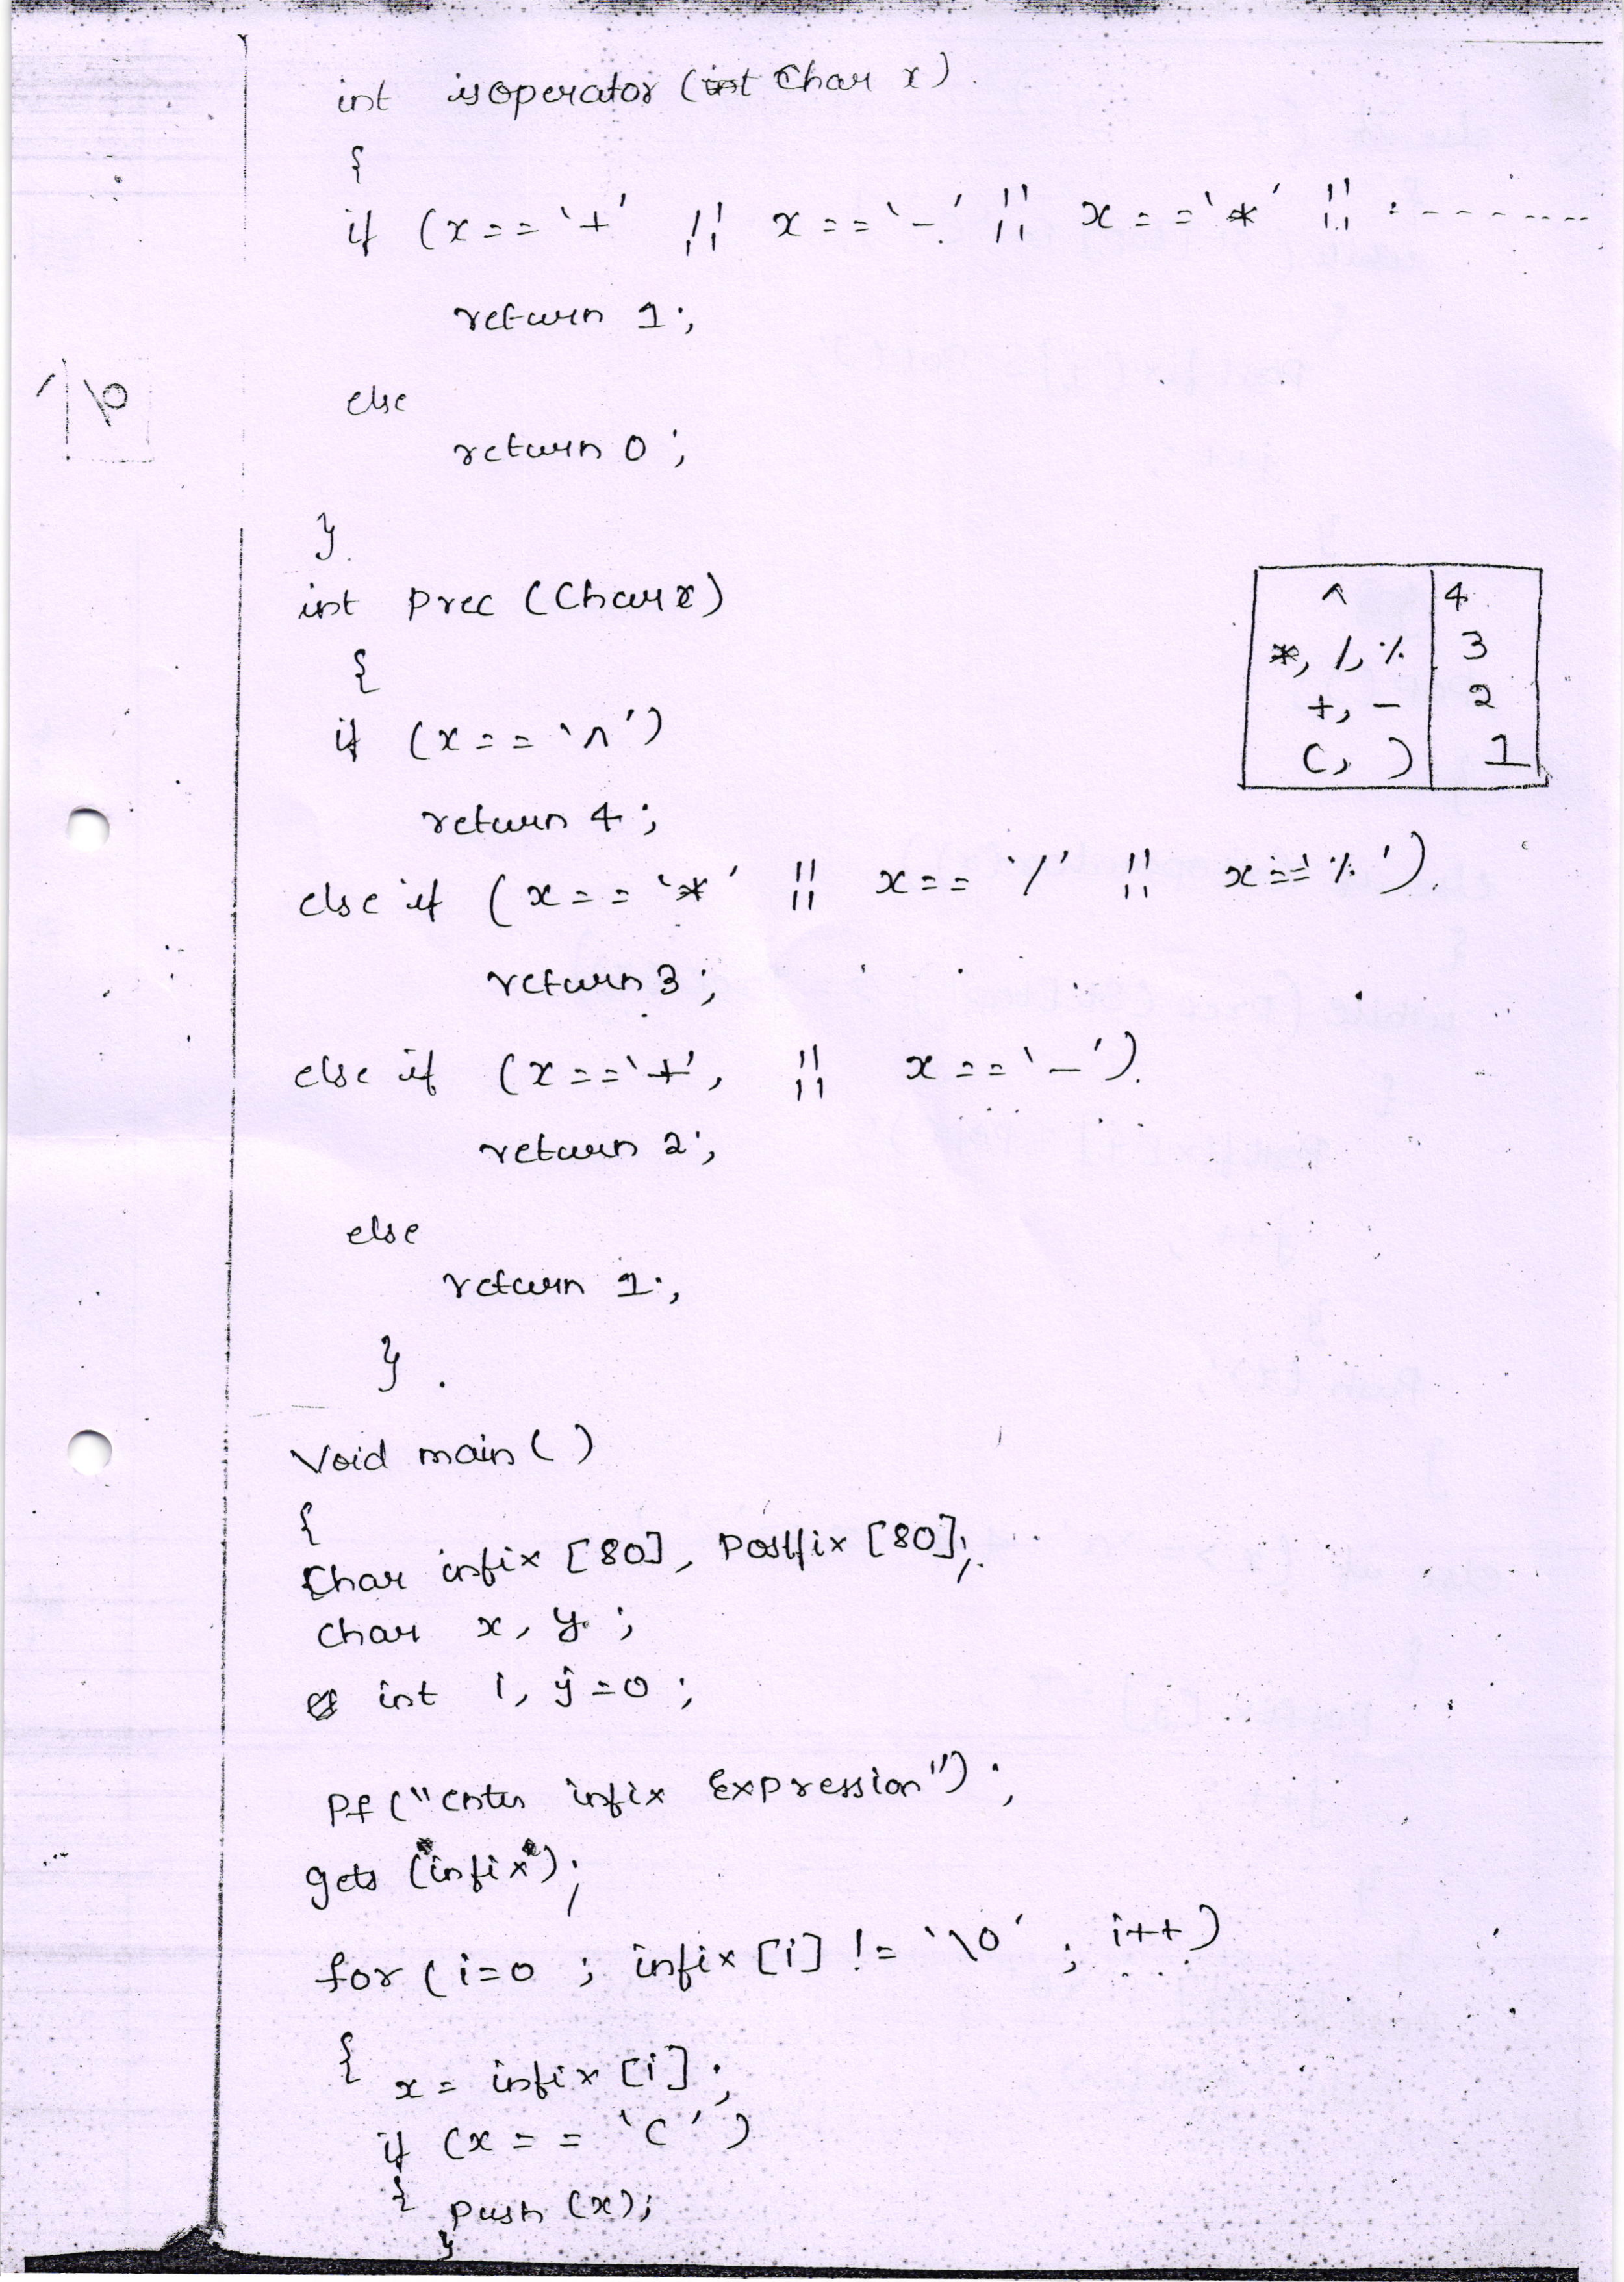 int isoperator (int Char x)
{
if (x=='+' || x=='-' || x=='*' || :---------
return 1;
else
return 0;
}
int Prec (Char x)
^ 4
{
*, /, % 3
+, - 2
if (x=='^')
(, ) 1
return 4;
else if (x=='*' || x=='/' || x=='%').
return 3;
else if (x=='+', || x=='-').
return 2;
else
return 1;
}.
Void main()
{
Char infix [80], Postfix [80];
Char x, y;
int i, j=0;
Pf ("enter infix Expression");
gets (infix);
for (i=0 ; infix [i] != '\0' ; i++)
{ x = infix [i];
if (x == '(')
{ Push (x);
}